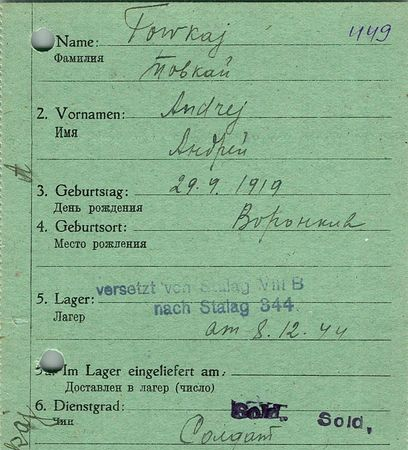 Name: Towkaj 449
Фамилия Товкай
2. Vornamen: Andrej
Имя Андрей
3. Geburtstag: 29.9.1919
День рождения
4. Geburtsort: Воронкив
Место рождения
versetzt von Stalag VIII B
5. Lager: nach Stalag 344.
Лагер am 8.12.44
Im Lager eingeliefert am:
Доставлен в лагер (число)
6. Dienstgrad: Sold. Sold.
Чин Солдат